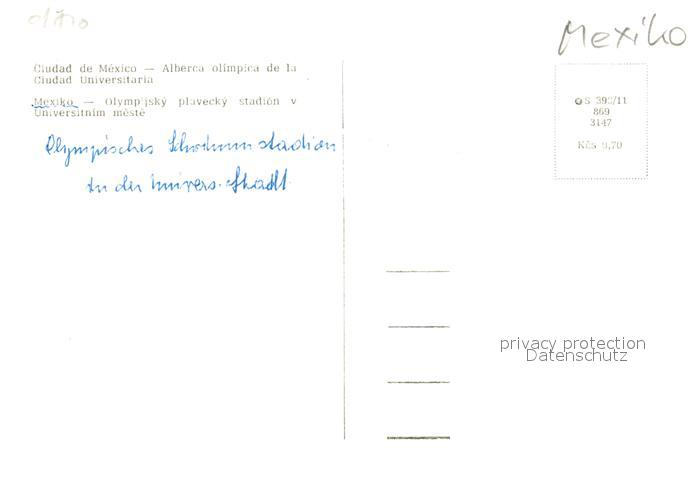 Mexiko
Ciudad de México — Alberca olímpica de la
Ciudad Universitaria
Mexiko — Olympijský plavecký stadión v
Universitním městě
Olympisches Schwimmstadion
in der Univers. Stadt
S 392/11
869
3147
Kčs 0,70
privacy protection
Datenschutz